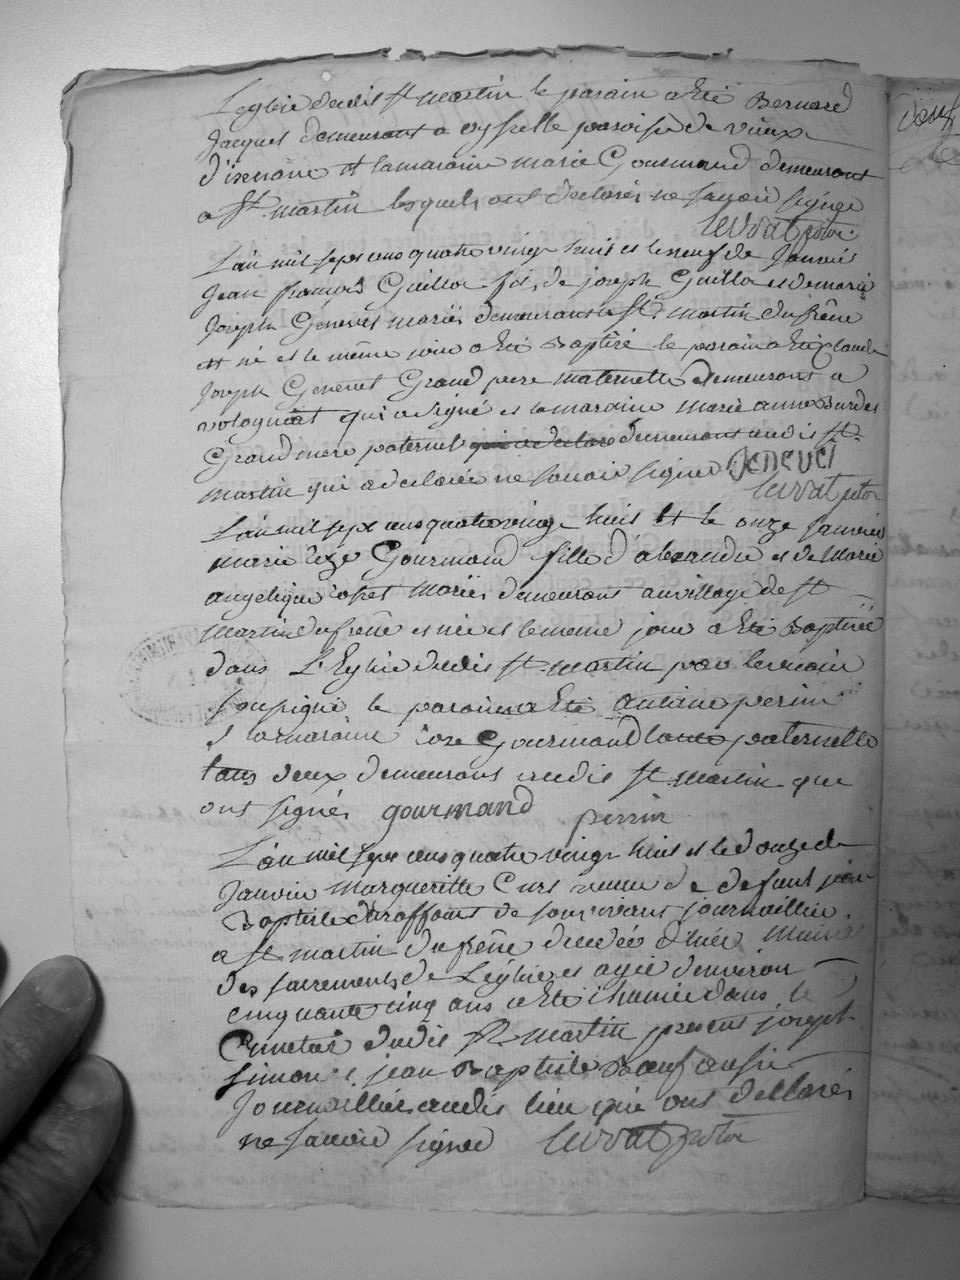 L'eglise dudit St martin le parain a Eté Bernard
Jacques demeurant a oyselle paroisse de vieux
d'isenave et la maraine marie Gourmand demeurant
a St martin lesquels ont declarés ne savoir signer
levrat
L'an mil sept cens quatre vingt huit et le neuf de Janvier
Jean françois Guillot fils de joseph Guillot et de marie
Joseph Genevet mariés demeurant a St martin du frêne
et né et le même jour a Eté Baptisé le parain a Eté Claude
Joseph Genevet Grand pere maternelle demeurant a
volognat qui a signé et la maraine marie anne Burdet
Grand mere paternel qui a declaré demeurant audit St
martin qui a declarée ne savoir signer Jenevei
levrat
L'an mil sept cens quatre vingt huit et le onze Janvier
marie Roze Gourmand fille d'alexandre et de Marie
angelique mariés demeurant au village de St
Martin du frêne est née et le meme jour a Eté Baptisée
dans L'Eglise dudit St martin par le vicaire
soussigné le parain a Eté antoine perrin
et la maraine roze Gourmand tante paternelle
tous deux demeurans audit St martin que
ont signés gourmand perrin
L'an mil sept cens quatre vingt huit et le douze de
Janvier Marguerite Curt veuve de defunt jean
Baptiste de son vivant journaillier
a St martin du frêne decedée d'hier Munie
des sacrements de L'eglise et agée d'environ
cinquante cinq ans a Eté inhumée dans le
Cimetier dudit St martin present joseph
simon et jean Baptiste
Journailliers audit lieu qui ont dellarés
ne savoir signer levrat